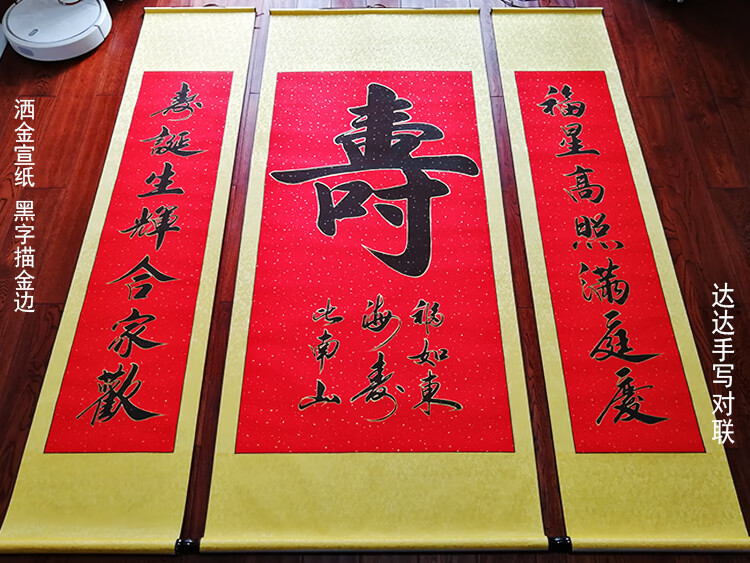 福星高照滿庭慶
壽
福如東
海壽
比南山
壽誕生輝合家歡
洒金宣纸 黑字描金边
达达手写对联